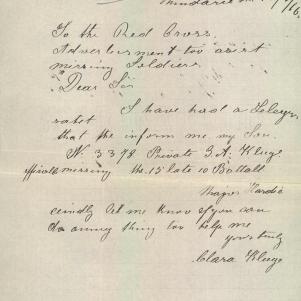 To the Red Cross.
Advertisment too asist
missing Soldiers
Dear Sir
I have had a
that the inform me my Son.
No. 3378 Private G. A. Kluge
missing the 15 late 10 Battall
cindly let me know if you can
do anny thing too help me
yours truly
Clara Kluge